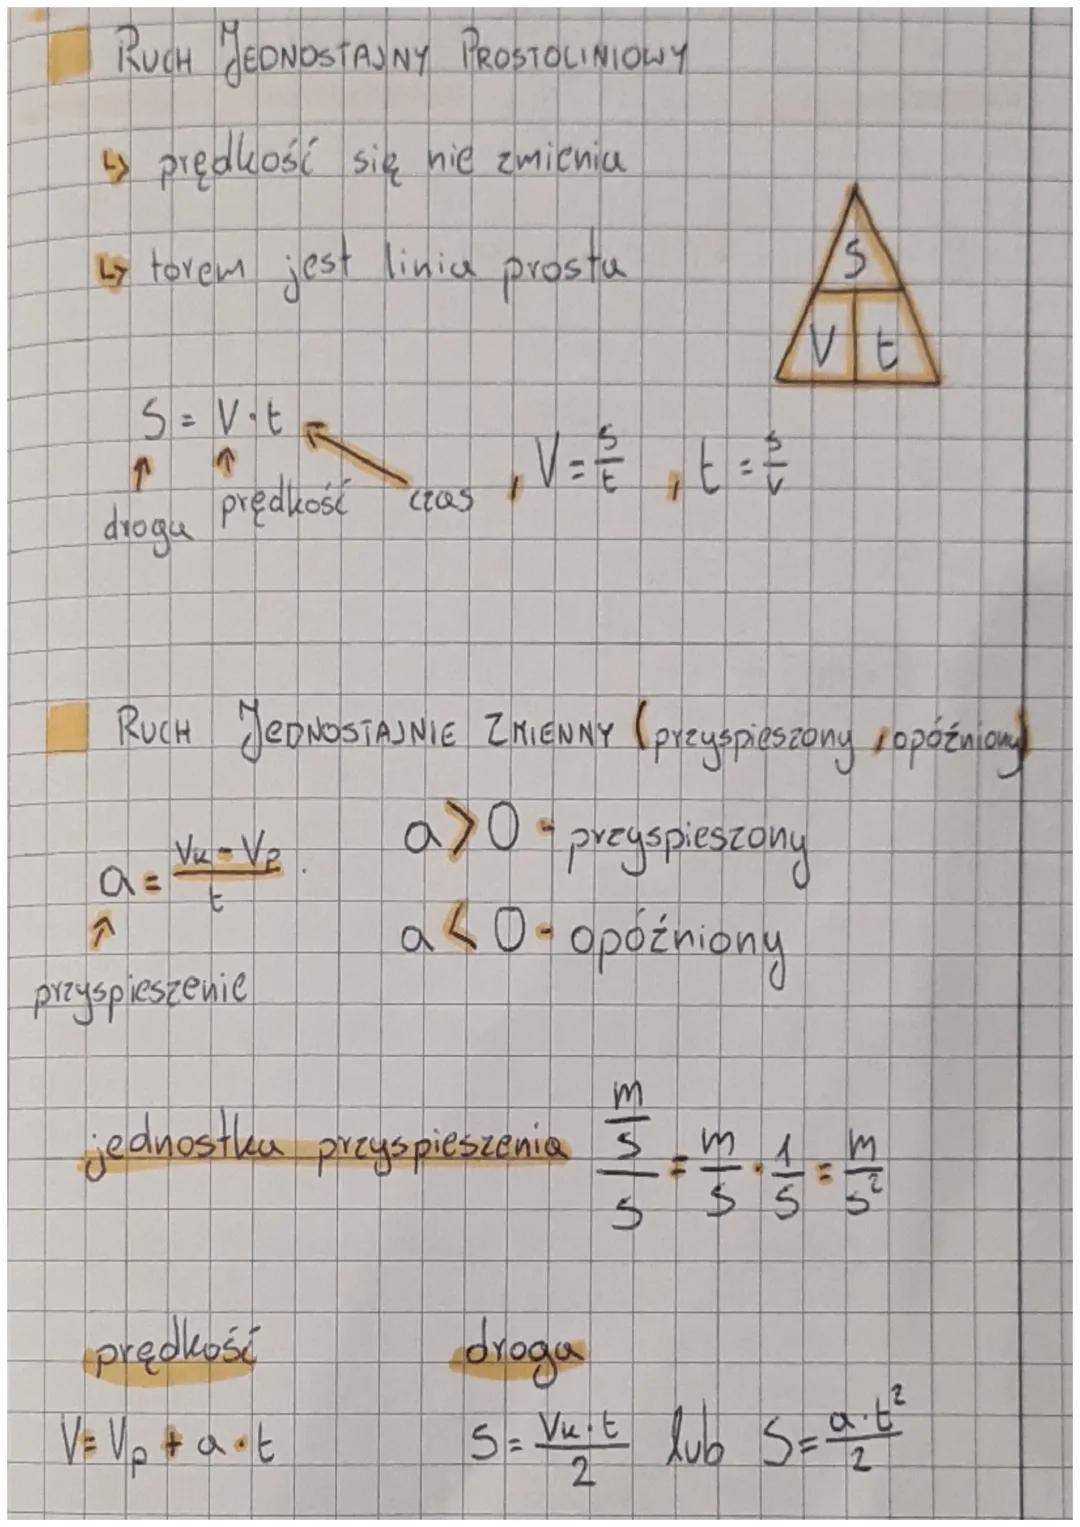 RUCH JEDNOSTAJNY PROSTOLINIOWY
↳ prędkość się nie zmienia
↳ torem jest linia prosta
S
V t
S = V · t , V = s/t , t = s/v
droga prędkość czas
RUCH JEDNOSTAJNIE ZMIENNY (przyspieszony, opóźniony)
a = (Vk - Vp)/t
a > 0 - przyspieszony
a < 0 - opóźniony
przyspieszenie
jednostka przyspieszenia (m/s)/s = m/s · 1/s = m/s²
prędkość droga
V = Vp + a · t S = (Vk · t)/2 lub S = (a · t²)/2